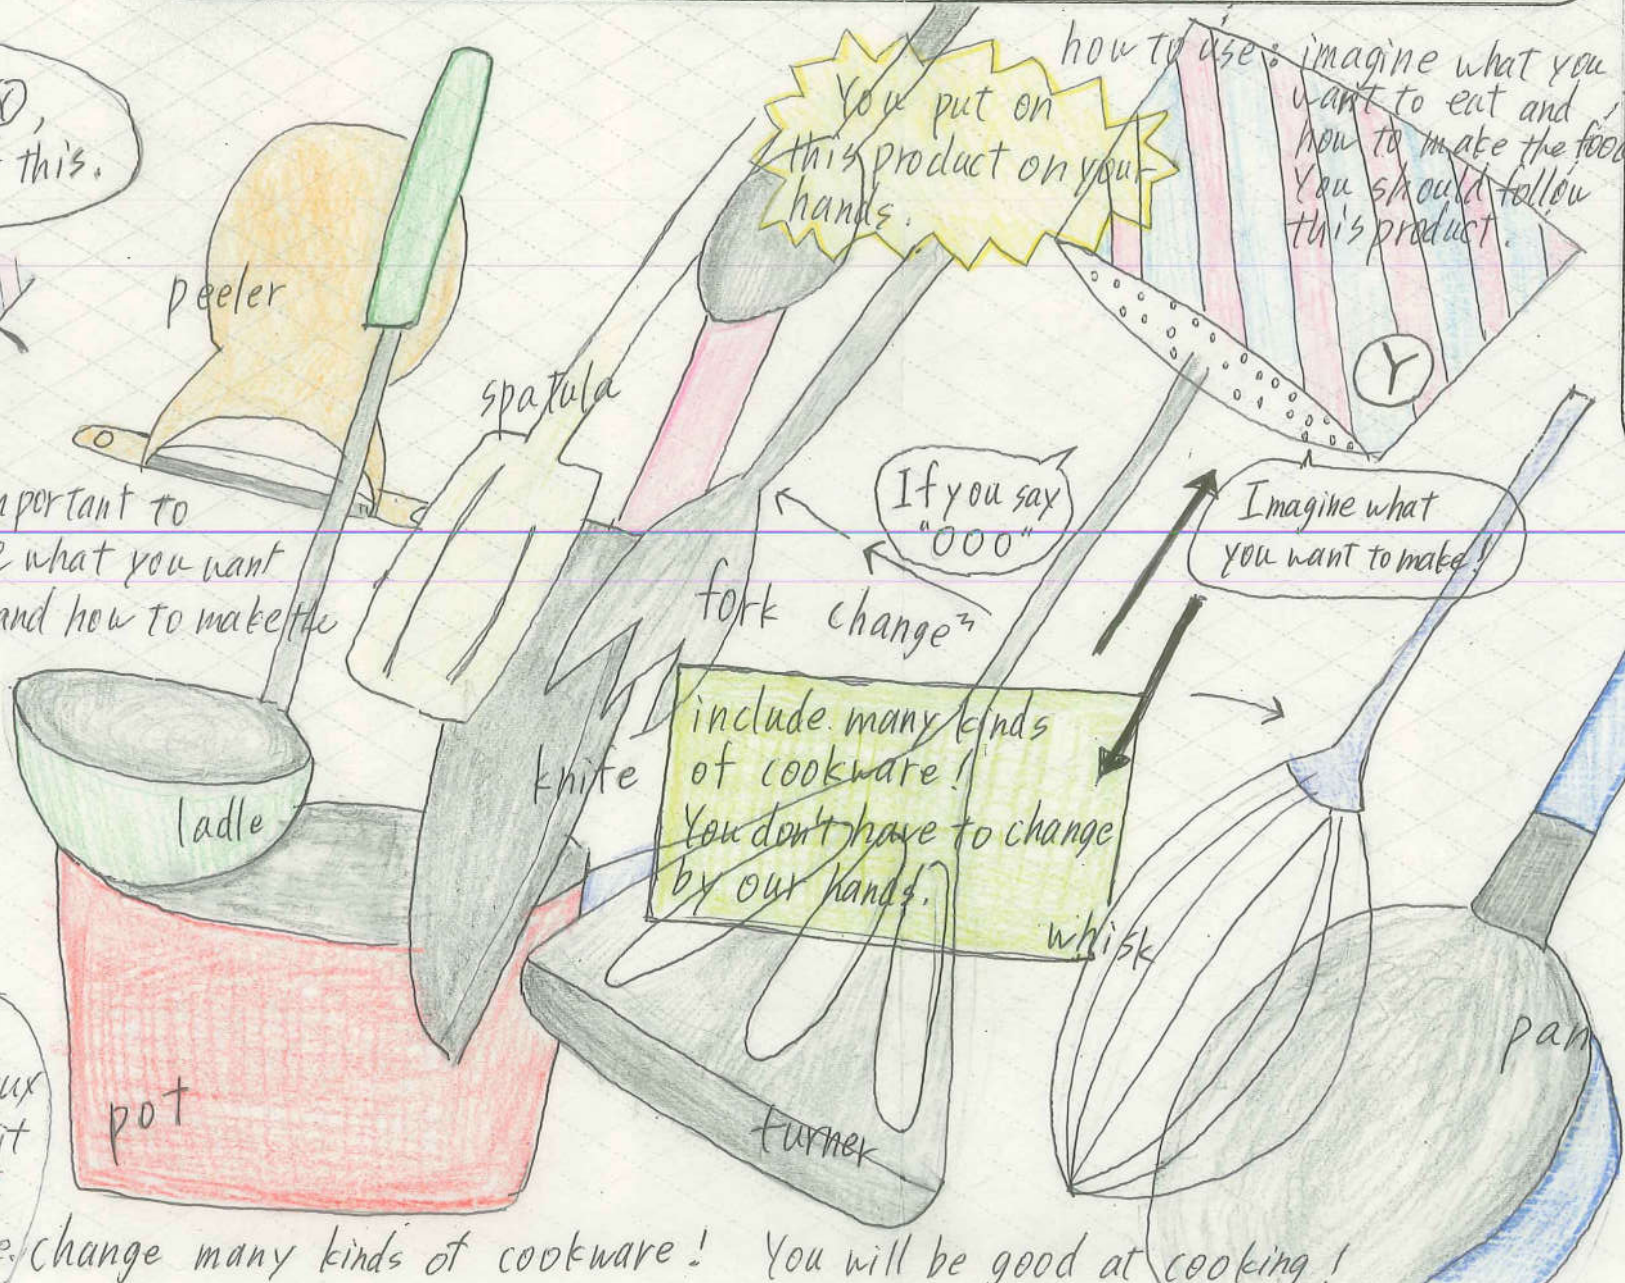 this.
You put on
this product on your
hands.
how to use: imagine what you
want to eat and
how to make the food
You should follow
this product.
Y
peeler
spatula
If you say
"OOO"
Imagine what
you want to make!
to
what you want
and how to make the
fork
change
include many kinds
of cookware!
You don't have to change
by our hands!
knife
ladle
whisk
pan
pot
turner
change many kinds of cookware! You will be good at cooking!